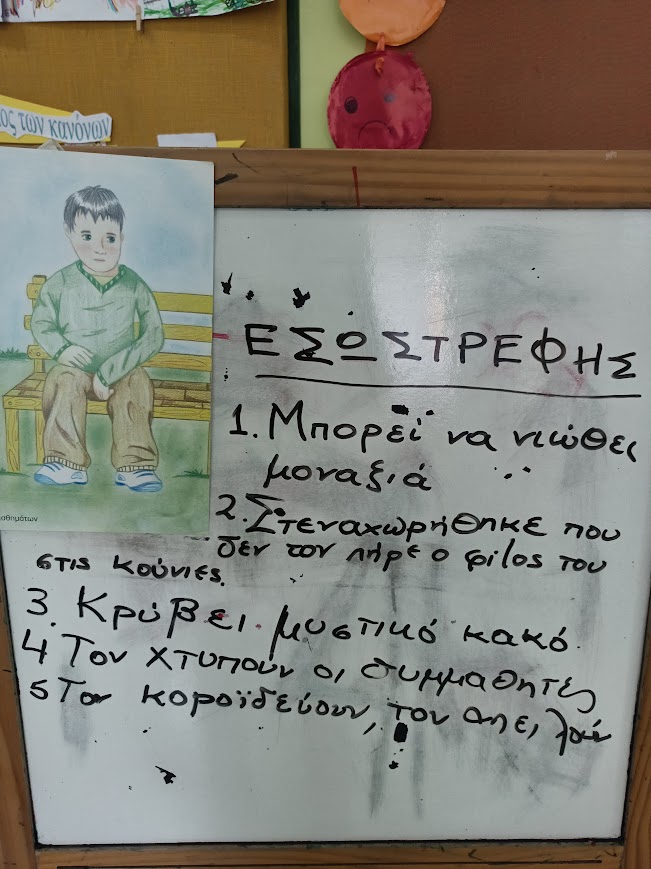 ος των κανόνων
αθημάτων
ΕΣΩΣΤΡΕΦΗΣ
1. Μπορεί να νιώθει
μοναξιά
2. Στεναχωρήθηκε που
δεν τον πήρε ο φίλος του
στις κούνιες.
3. Κρύβει μυστικό κακό.
4 Τον χτυπούν οι συμμαθητές
5 Τον κοροϊδεύουν, τον απειλούν